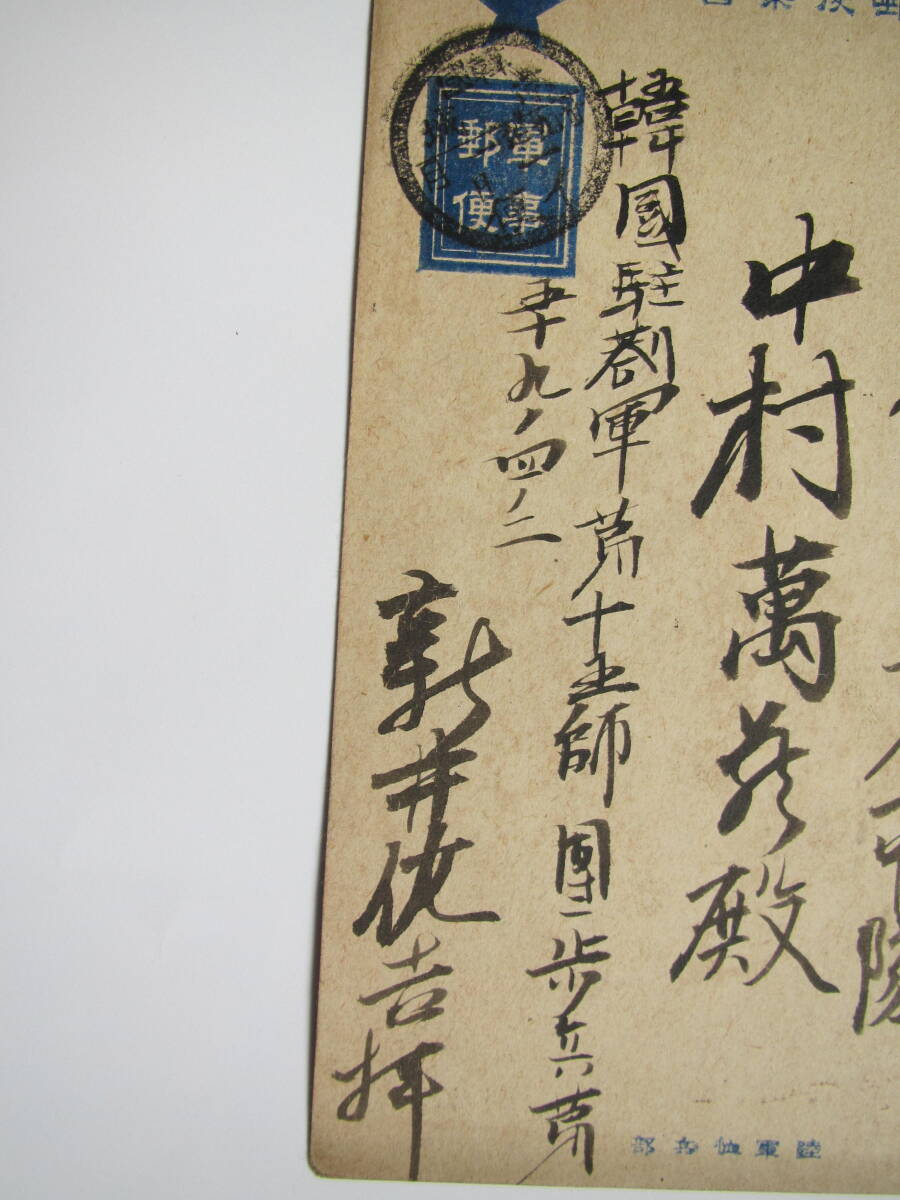 中村萬花殿
韓國駐剳軍第十五師團歩兵第
五十九ノ四ノ二
新井仪吉拝
軍事
郵便
陸軍恤兵部